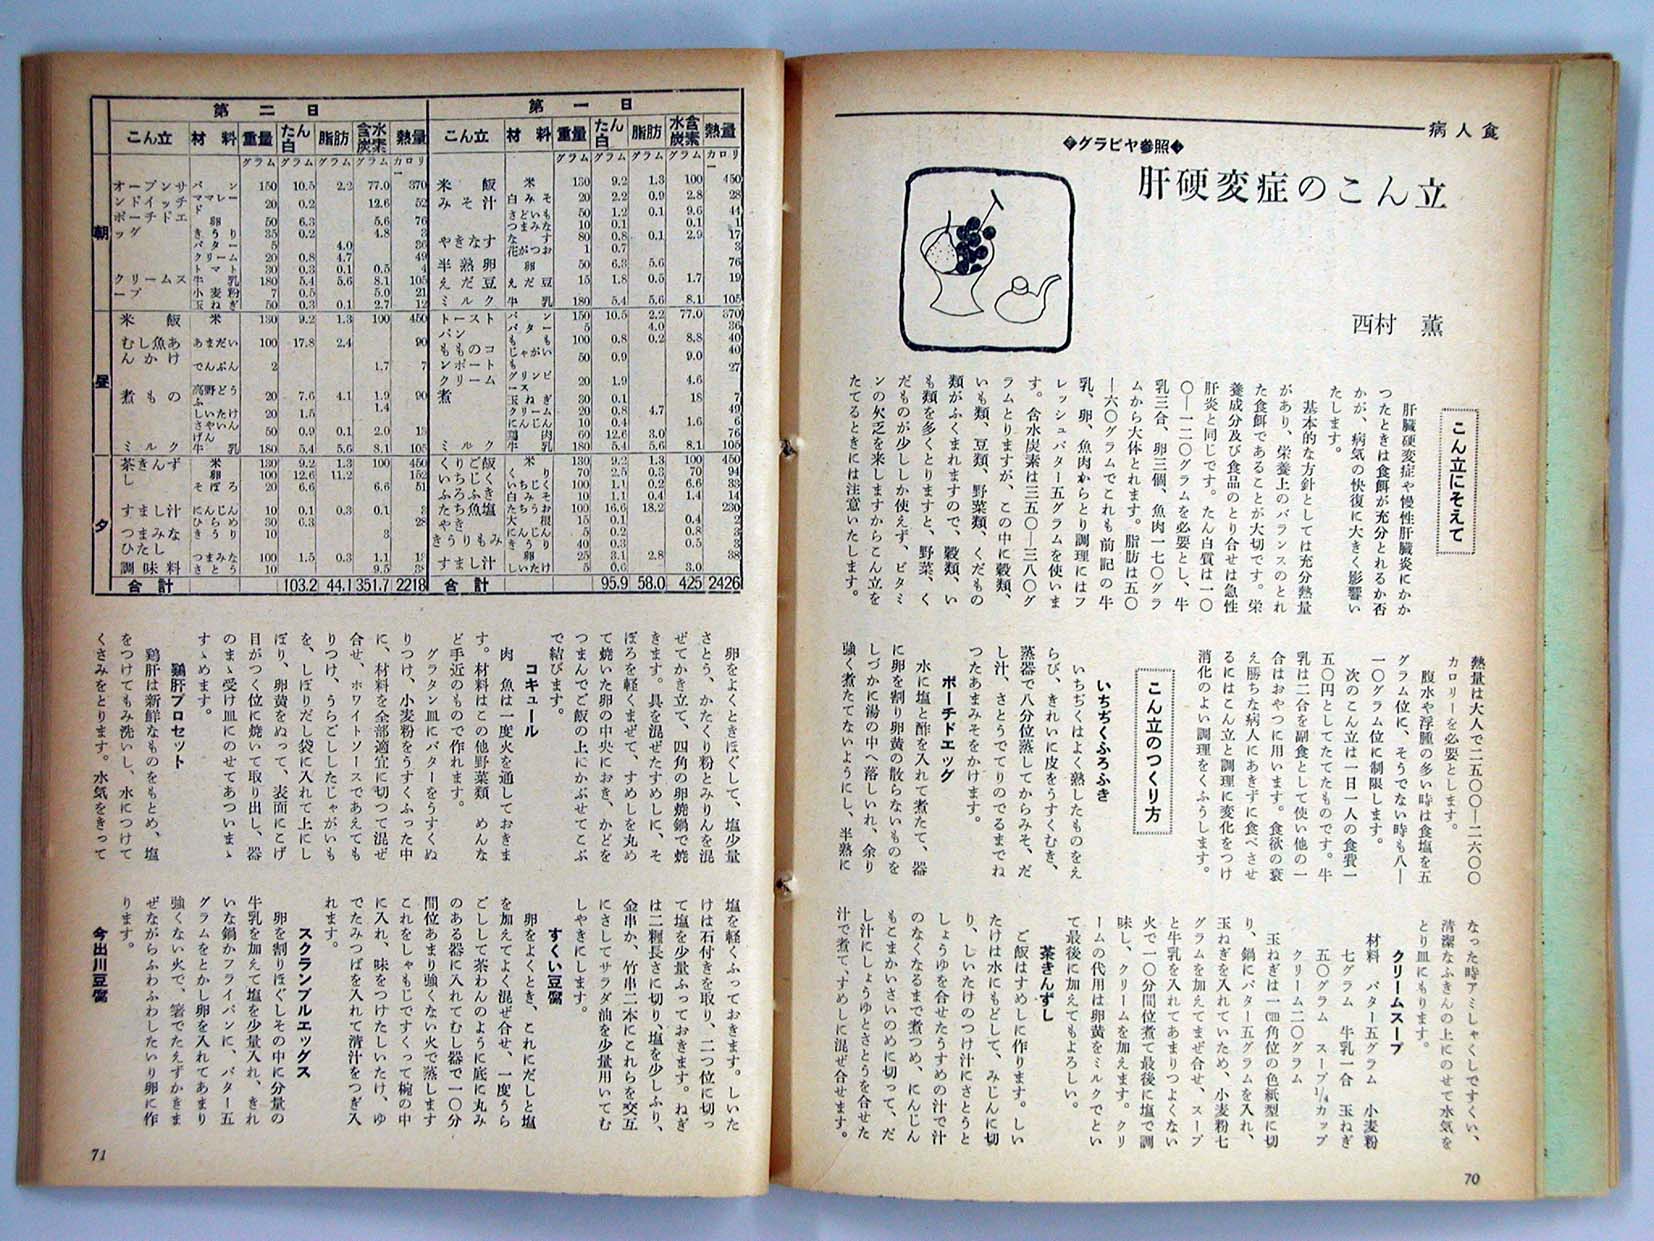 病人食
グラビヤ参照
肝硬変症のこん立
西村　薫
こん立にそえて
肝臓硬変症や慢性肝臓炎にかか
つたときは食餌が充分とれるか否
かが、病気の快復に大きく影響い
たします。
基本的な方針としては充分熱量
があり、栄養上のバランスのとれ
た食餌であることが大切です。栄
養成分及び食品のとり合せは急性
肝炎と同じです。たん白質は一〇
〇―一二〇グラムを必要とし、牛
乳三合、卵三個、魚肉一七〇グラ
ムから大体とれます。脂肪は五〇
―六〇グラムでこれも前記の牛
乳、卵、魚肉からとり調理にはフ
レッシュバター五グラムを使いま
す。含水炭素は三五〇―三八〇グ
ラムとりますが、この中に穀類、
いも類、豆類、野菜類、くだもの
類がふくまれますので、穀類、い
も類を多くとりますと、野菜、く
だものが少ししか使えず、ビタミ
ンの欠乏を来しますからこん立を
たてるときには注意いたします。
熱量は大人で二五〇〇―二六〇〇
カロリーを必要とします。
腹水や浮腫の多い時は食塩を五
グラム位に、そうでない時も八―
一〇グラム位に制限します。
次のこん立は一日一人の食費一
五〇円としてたてたものです。牛
乳は二合を副食として使い他の一
合はおやつに用います。食欲の衰
え勝ちな病人にあきずに食べさせ
るにはこん立と調理に変化をつけ
消化のよい調理をくふうします。
こん立のつくり方
いちぢくふろふき
いちぢくはよく熟したものをえ
らび、きれいに皮をうすくむき、
蒸器で八分位蒸してからみそ、だ
し汁、さとうでてりのでるまでね
つたあまみそをかけます。
ポーチドエッグ
水に塩と酢を入れて煮たて、器
に卵を割り卵黄の散らないものを
しづかに湯の中へ落しいれ、余り
強く煮たてないようにし、半熟に
なった時アミしゃくしですくい、
清潔なふきんの上にのせて水気を
とり皿にもります。
クリームスープ
材料　バター五グラム　小麦粉
七グラム　牛乳一合　玉ねぎ
五〇グラム　スープ1/4カップ
クリーム二〇グラム
玉ねぎは一㎝角位の色紙型に切
り、鍋にバター五グラムを入れ、
玉ねぎを入れていため、小麦粉七
グラムを加えてまぜ合せ、スープ
と牛乳を入れてあまりつよくない
火で一〇分間位煮て最後に塩で調
味し、クリームを加えます。クリ
ームの代用は卵黄をミルクでとい
て最後に加えてもよろしい。
茶きんずし
ご飯はすめしに作ります。しい
たけは水にもどして、みじんに切
り、しいたけのつけ汁にさとうと
しょうゆを合せたうすめの汁で汁
のなくなるまで煮つめ、にんじん
もこまかいさいのめに切って、だ
し汁にしょうゆとさとうを合せた
汁で煮て、すめしに混ぜ合せます。
70
第一日
こん立　材料　重量　たん白　脂肪　含水炭素　熱量
グラム　グラム　グラム　グラム　カロリー
米飯　米　130　9.2　1.3　100　450
みそ汁　白みそ　20　2.2　0.9　2.8　28
さといも　50　1.2　0.1　9.6　44
つまみな　10　0.1　0.1　1
やきなす　なす　80　0.8　0.1　2.9　17
花がつお　1　0.7　3
半熟卵　卵　50　6.3　5.6　76
えだ豆　えだ豆　15　1.8　0.5　1.7　19
ミルク　牛乳　180　5.4　5.6　8.1　105
トースト　パン　150　10.5　2.2　77.0　370
バター　5　4.0　36
もものコンポート　もも　100　0.8　0.2　8.8　40
クリーム煮　じゃがいも　50　0.9　9.0　40
グリンピース　20　1.9　4.6　27
玉ねぎ　30　0.1　18　7
クリーム　20　0.8　4.7　49
にんじん　10　0.4　1.6　6
鶏肉　60　12.6　3.0　76
ミルク　牛乳　180　5.4　5.6　8.1　105
くりご飯　米　130　9.2　1.3　100　450
くり　70　2.5　0.3　70　94
いちぢくふろふき　いちぢく　100　1.1　0.2　6.6　33
白みそ　10　1.1　0.4　1.4　14
たちうお　100　16.6　18.2　230
大根　15　0.1　0.4　2
きうりもみ　きうり　40　0.3　0.5　3
すまし汁　卵　25　3.1　2.8　38
しいたけ　5　0.6　3.0
合計　95.9　58.0　425　2426
第二日
こん立　材料　重量　たん白　脂肪　含水炭素　熱量
グラム　グラム　グラム　グラム　カロリー
朝
オープンサンドイッチ　パン　150　10.5　2.2　77.0　370
ママレード　20　0.2　12.6　52
ポーチドエッグ　卵　50　6.3　5.6　76
きうり　35　0.2　4.8　3
バター　5　4.0　36
クリーム　20　0.8　4.7　49
トマト　30　0.3　0.1　0.5　4
クリームスープ　牛乳　180　5.4　5.6　8.1　105
小麦粉　7　0.5　5.0　21
玉ねぎ　50　0.3　0.1　2.7　12
昼
米飯　米　130　9.2　1.3　100　450
むし魚あんかけ　あまだい　100　17.8　2.4　90
でんぷん　2　1.7　7
煮もの　高野どうふ　20　7.6　4.1　1.9　90
しいたけ　20　1.5　1.4
さやいんげん　50　0.9　0.1　2.0　13
ミルク　牛乳　180　5.4　5.6　8.1　105
夕
茶きんずし　米　130　9.2　1.3　100　450
卵　100　12.6　11.2　152
そぼろ　20　6.6　6.6　51
すまし汁　にんじん　10　0.1　0.3　0.1　3
ひらめ　30　6.3　28
つまみなひたし　つまみな　100　1.5　0.3　1.1　13
調味料　さとう　10　9.5　38
合計　103.2　44.1　351.7　2218
卵をよくときほぐして、塩少量
さとう、かたくり粉とみりんを混
ぜてかき立て、四角の卵焼鍋で焼
きます。具を混ぜたすめしに、そ
ぼろを軽くまぜて、すめしを丸め
て焼いた卵の中央におき、かどを
つまんでご飯の上にかぶせてこぶ
で結びます。
コキュール
肉　魚は一度火を通しておきま
す。材料はこの他野菜類　めんな
ど手近のもので作れます。
グラタン皿にバターをうすくぬ
りつけ、小麦粉をうすくふった中
に、材料を全部適宜に切つて混ぜ
合せ、ホワイトソースであえても
りつけ、うらごししたじゃがいも
を、しぼりだし袋に入れて上にし
ぼり、卵黄をぬって、表面にこげ
目がつく位に焼いて取り出し、器
のまゝ受け皿にのせてあついまゝ
すゝめます。
鷄肝ブロセット
鶏肝は新鮮なものをもとめ、塩
をつけてもみ洗いし、水につけて
くさみをとります。水気をきって
塩を軽くふっておきます。しいた
けは石付きを取り、二つ位に切っ
て塩を少量ふっておきます。ねぎ
は二糎長さに切り、塩を少しふり、
金串か、竹串二本にこれらを交互
にさしてサラダ油を少量用いてむ
しやきにします。
すくい豆腐
卵をよくとき、これにだしと塩
を加えてよく混ぜ合せ、一度うら
ごしして茶わんのように底に丸み
のある器に入れてむし器で一〇分
間位あまり強くない火で蒸します
これをしゃもじですくって椀の中
に入れ、味をつけたしいたけ、ゆ
でたみつばを入れて清汁をつぎ入
れます。
スクランブルエッグス
卵を割りほぐしその中に分量の
牛乳を加えて塩を少量入れ、きれ
いな鍋かフライパンに、バター五
グラムをとかし卵を入れてあまり
強くない火で、箸でたえずかきま
ぜながらふわふわしたいり卵に作
ります。
今出川豆腐
71